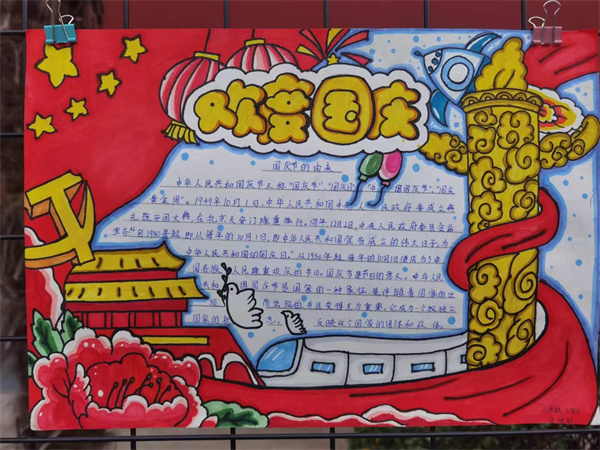 欢度国庆
国庆节的由来
中华人民共和国国庆节又称“国庆节”、“国庆日”、“中国国庆节”、“国庆
黄金周”。1949年10月1日，中华人民共和国中央人民政府宣布成立典
礼，既开国大典，在北京天安门隆重举行。1949年12月2日，中央人民政府委员会
宣告“自1950年起，即以每年的10月1日，即中华人民共和国宣告成立的伟大日子，为
中华人民共和国的国庆日。”从1950年起，每年的10月1日便成为了中
国各族人民隆重欢庆的节日。国庆节是节日的意义，中华人
共和 国国庆节是国家的一种象征，是伴随着国家的出
现 而出现的，并且变得尤为重要，它成为一个独立
国家的 志， 反映这个国家的国体和政体。